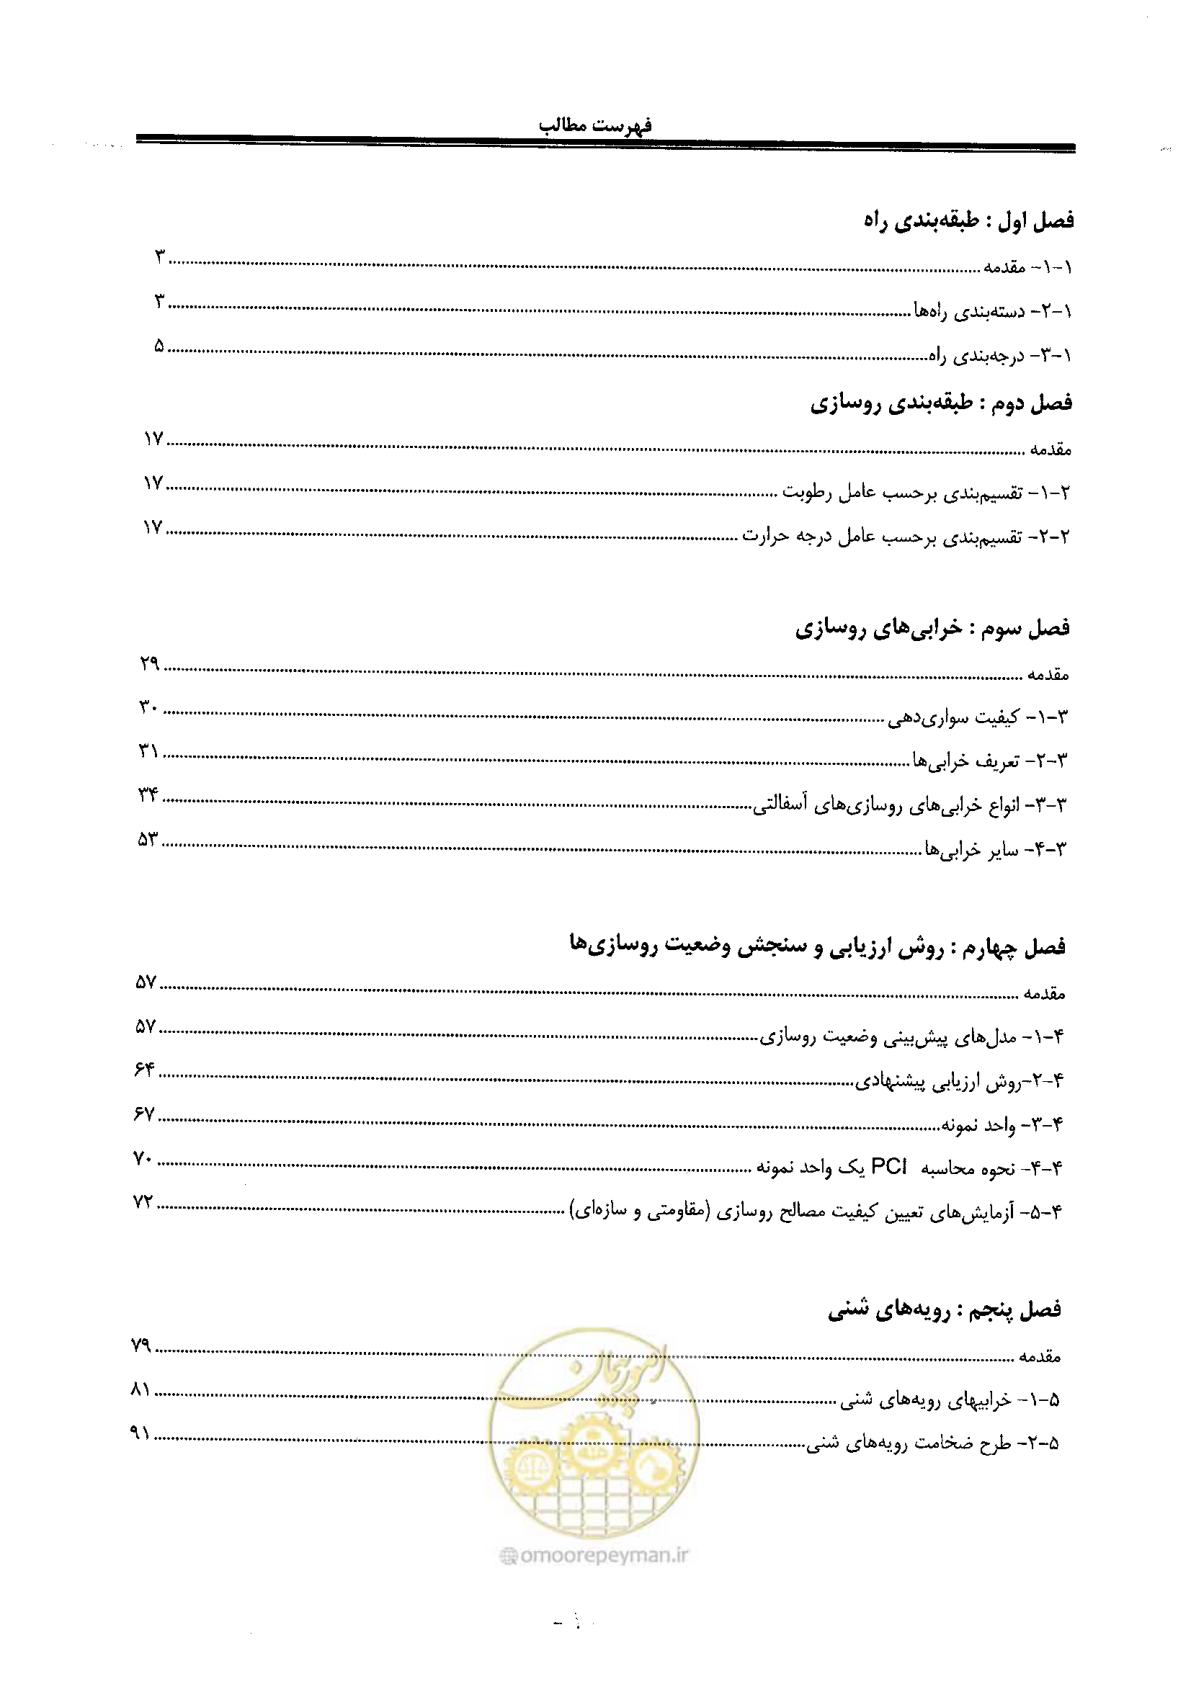 فهرست مطالب
فصل اول : طبقه‌بندی راه
۱-۱- مقدمه ........ ۳
۱-۲- دسته‌بندی راه‌ها ........ ۳
۱-۳- درجه‌بندی راه ........ ۵
فصل دوم : طبقه‌بندی روسازی
مقدمه ........ ۱۷
۲-۱- تقسیم‌بندی برحسب عامل رطوبت ........ ۱۷
۲-۲- تقسیم‌بندی برحسب عامل درجه حرارت ........ ۱۷
فصل سوم : خرابی‌های روسازی
مقدمه ........ ۲۹
۳-۱- کیفیت سواری‌دهی ........ ۳۰
۳-۲- تعریف خرابی‌ها ........ ۳۱
۳-۳- انواع خرابی‌های روسازی‌های آسفالتی ........ ۳۴
۳-۴- سایر خرابی‌ها ........ ۵۳
فصل چهارم : روش ارزیابی و سنجش وضعیت روسازی‌ها
مقدمه ........ ۵۷
۴-۱- مدل‌های پیش‌بینی وضعیت روسازی ........ ۵۷
۴-۲-روش ارزیابی پیشنهادی ........ ۶۴
۴-۳- واحد نمونه ........ ۶۷
۴-۴- نحوه محاسبه PCI یک واحد نمونه ........ ۷۰
۴-۵- آزمایش‌های تعیین کیفیت مصالح روسازی (مقاومتی و سازه‌ای) ........ ۷۲
فصل پنجم : رویه‌های شنی
مقدمه ........ ۷۹
۵-۱- خرابیهای رویه‌های شنی ........ ۸۱
۵-۲- طرح ضخامت رویه‌های شنی ........ ۹۱
امور پیمان
omoorepeyman.ir